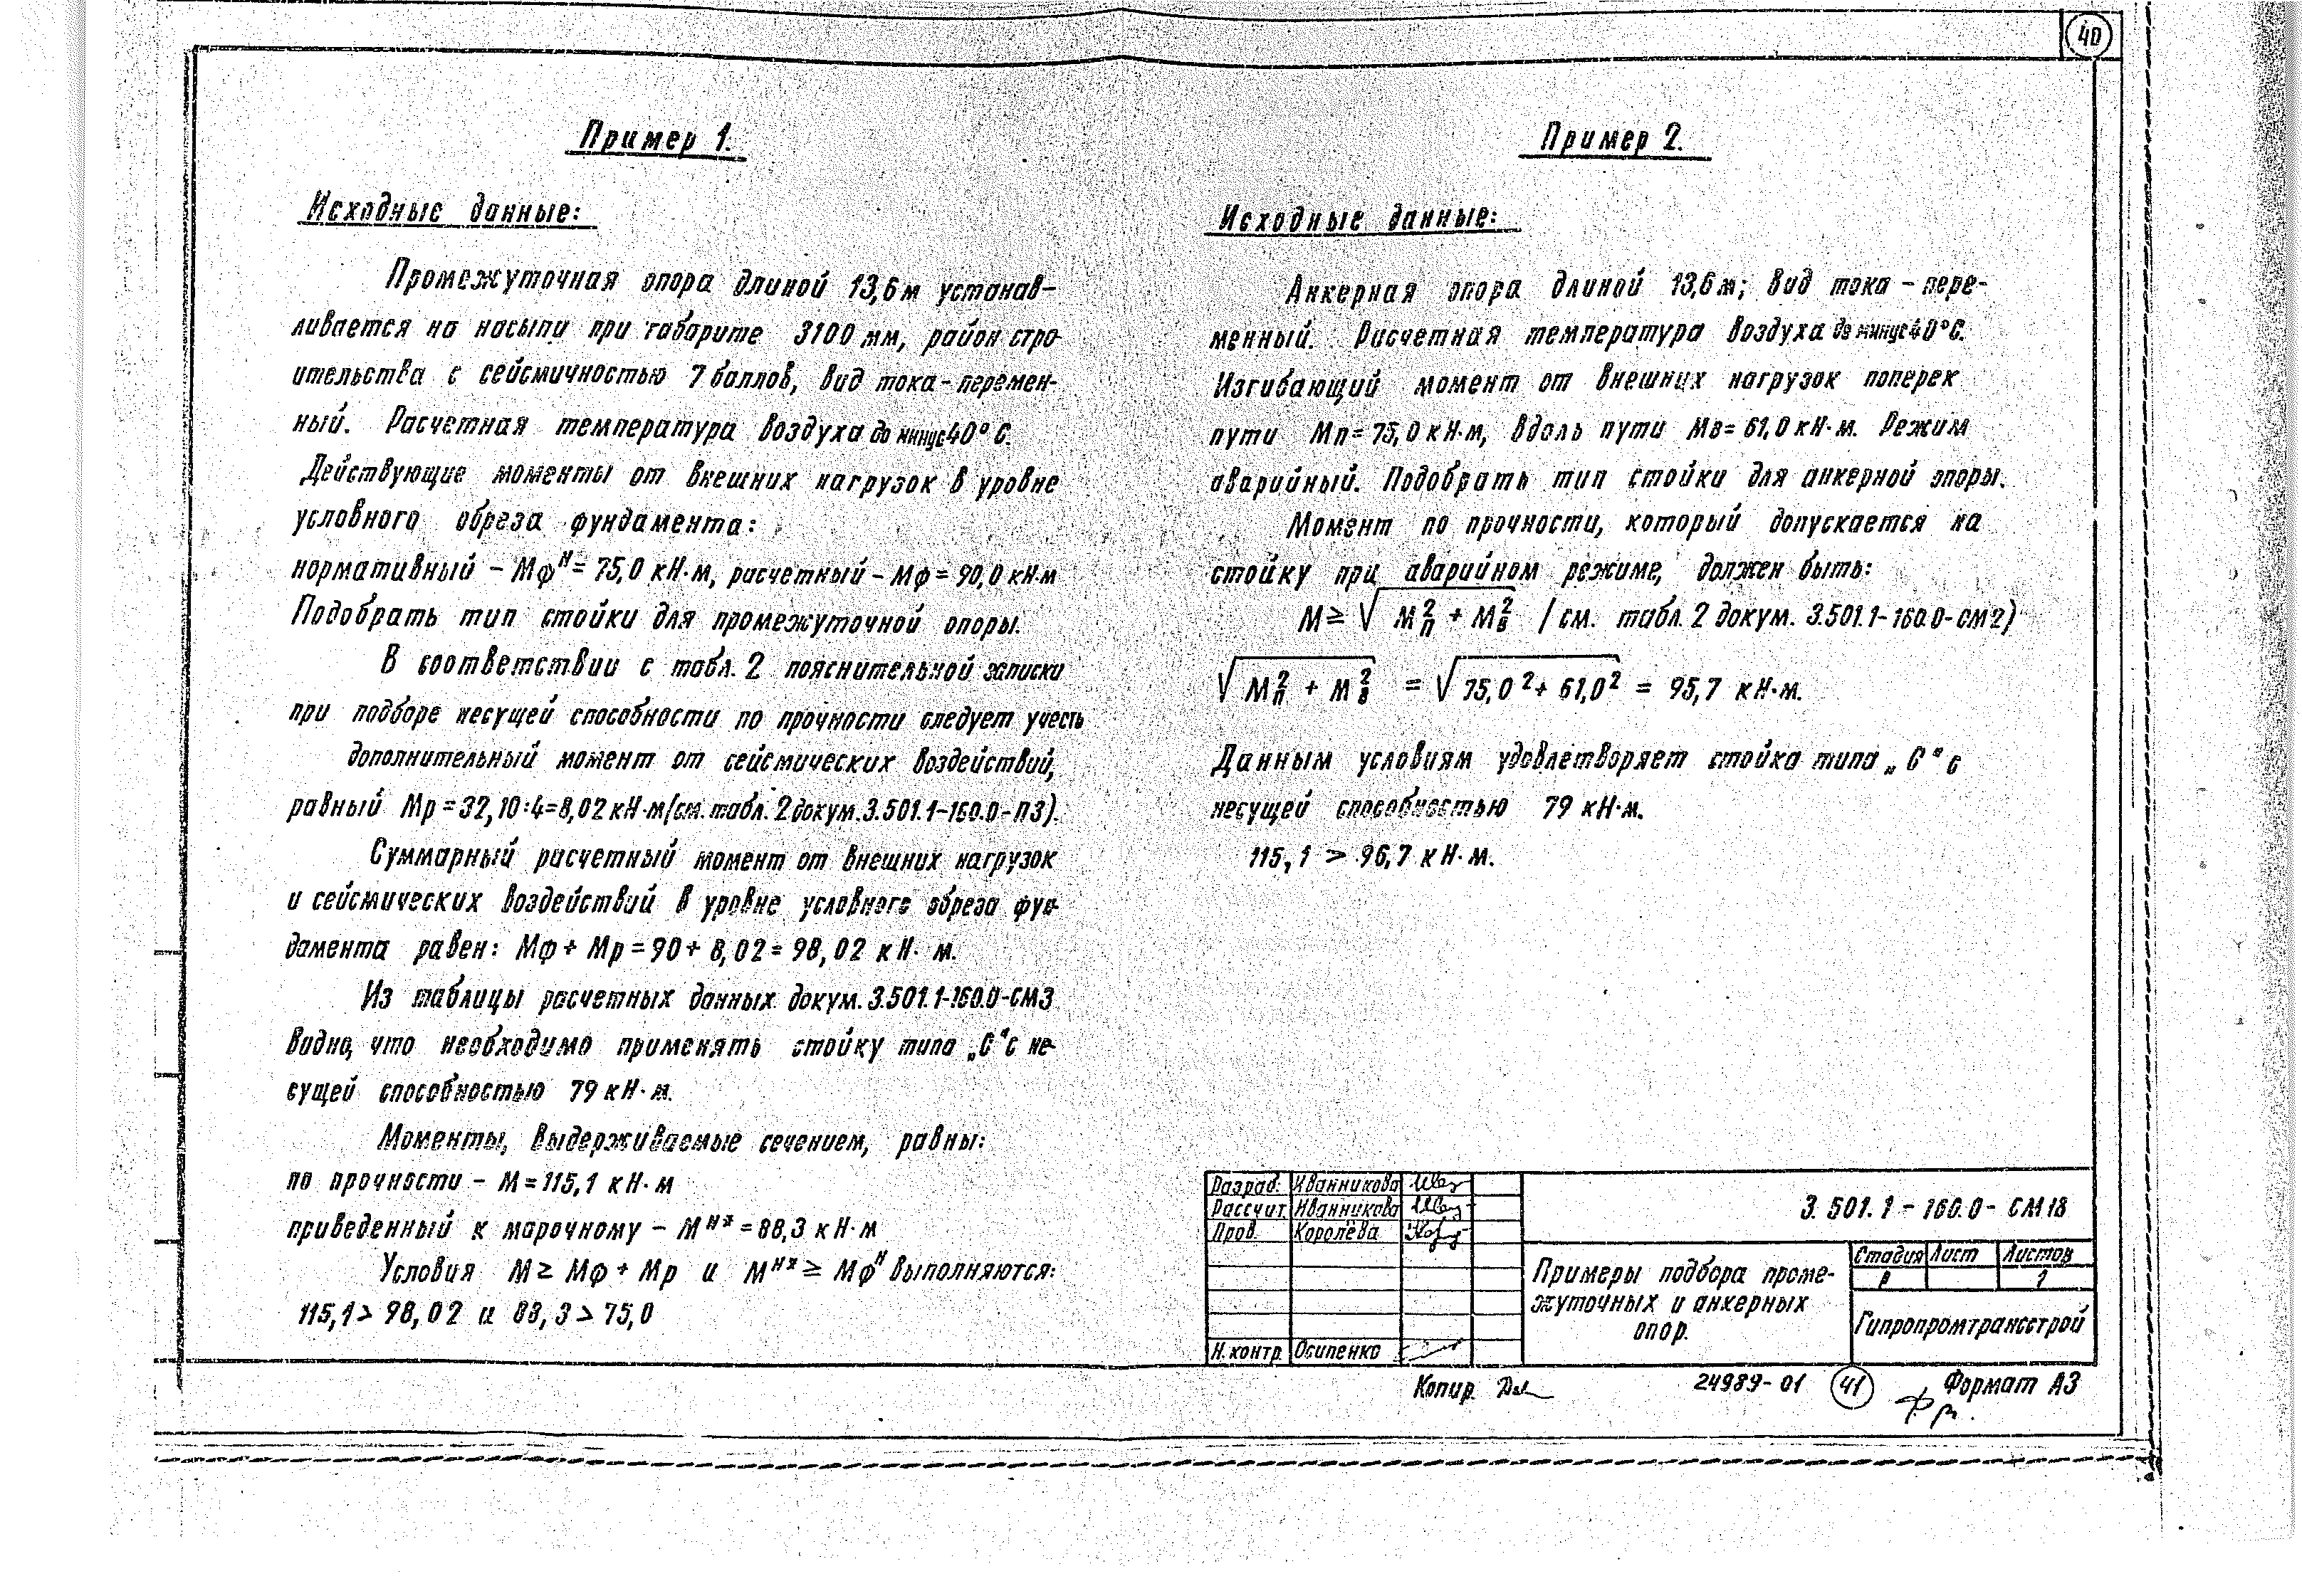 40
Пример 1.
Исходные данные:
Промежуточная опора длиной 13,6 м устанав-
ливается на насыпи при габарите 3100 мм, район стро-
ительства с сейсмичностью 7 баллов, вид тока - перемен-
ный. Расчетная температура воздуха до минус 40° С.
Действующие моменты от внешних нагрузок в уровне
условного обреза фундамента:
нормативный - Мфᴴ = 75,0 кН·м, расчетный - Мф = 90,0 кН·м
Подобрать тип стойки для промежуточной опоры.
В соответствии с табл. 2 пояснительной записки
при подборе несущей способности по прочности следует учесть
дополнительный момент от сейсмических воздействий,
равный Мр = 32,10 : 4 = 8,02 кН·м (см. табл. 2 докум. 3.501.1-160.0-ПЗ).
Суммарный расчетный момент от внешних нагрузок
и сейсмических воздействий в уровне условного обреза фун-
дамента равен: Мф + Мр = 90 + 8,02 = 98,02 кН·м.
Из таблицы расчетных данных докум. 3.501.1-160.0-СМ3
видно, что необходимо применять стойку типа „С“ с не-
сущей способностью 79 кН·м.
Моменты, выдерживаемые сечением, равны:
по прочности - М = 115,1 кН·м
приведенный к марочному - Мᴴˣ = 88,3 кН·м
Условия М ≥ Мф + Мр и Мᴴˣ ≥ Мфᴴ выполняются:
115,1 > 98,02 и 88,3 > 75,0
Пример 2.
Исходные данные:
Анкерная опора длиной 13,6 м; вид тока - пере-
менный. Расчетная температура воздуха до минус 40° С.
Изгибающий момент от внешних нагрузок поперек
пути Мп = 75,0 кН·м, вдоль пути Мв = 61,0 кН·м. Режим
аварийный. Подобрать тип стойки для анкерной опоры.
Момент по прочности, который допускается на
стойку при аварийном режиме, должен быть:
М ≥ √(Мп² + Мв²) /см. табл. 2 докум. 3.501.1-160.0-СМ2)
√(Мп² + Мв²) = √(75,0² + 61,0²) = 95,7 кН·м.
Данным условиям удовлетворяет стойка типа „С“ с
несущей способностью 79 кН·м.
115,1 > 96,7 кН·м.
Разраб. Иванникова
Рассчит. Иванникова
Пров. Королёва
Н. контр. Осипенко
3.501.1-160.0-СМ18
Примеры подбора проме-
жуточных и анкерных
опор.
Стадия Лист Листов
Р 1
Гипропромтрансстрой
Копир. 24989-01 41 Формат А3